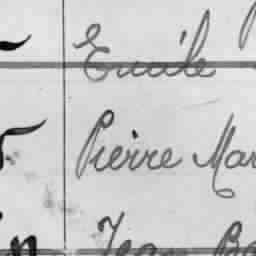 Emile
Pierre Mar
Jean Ba